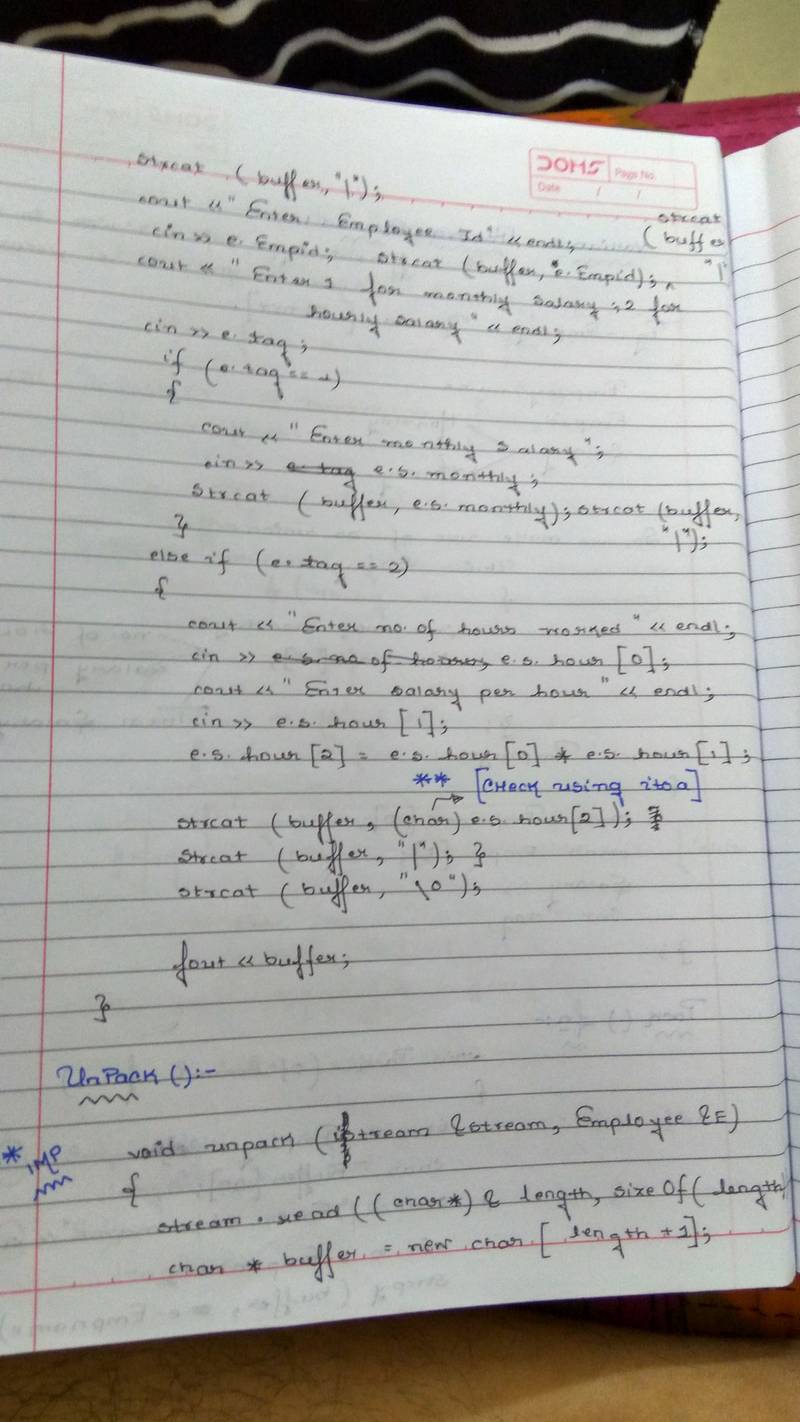 DOMS Page No.
Date / /
strcat (buffer, "|");
cout << "Enter Employee Id" << endl; strcat
cin >> e.Empid; strcat (buffer, e.Empid); ^ (buffer
cout << "Enter 1 for monthly salary, 2 for "|
hourly salary" << endl;
cin >> e.tag;
if (e.tag == 1)
{
cout << "Enter monthly salary";
cin >> e.tag e.s.monthly;
strcat (buffer, e.s.monthly); strcat (buffer,
} "|");
else if (e.tag == 2)
{
cout << "Enter no. of hours worked" << endl;
cin >> e.s.no of hours, e.s.hour[0];
cout << "Enter salary per hour" << endl;
cin >> e.s.hour[1];
e.s.hour[2] = e.s.hour[0] * e.s.hour[1];
** [Check using itoa]
strcat (buffer, (char) e.s.hour[2]);
strcat (buffer, "|"); }
strcat (buffer, "\0");
fout << buffer;
}
UnPack ():-
* IMP void unpack (istream &stream, Employee &E)
{
stream.read((char*) & length, sizeOf(length
char * buffer = new char [length + 1];